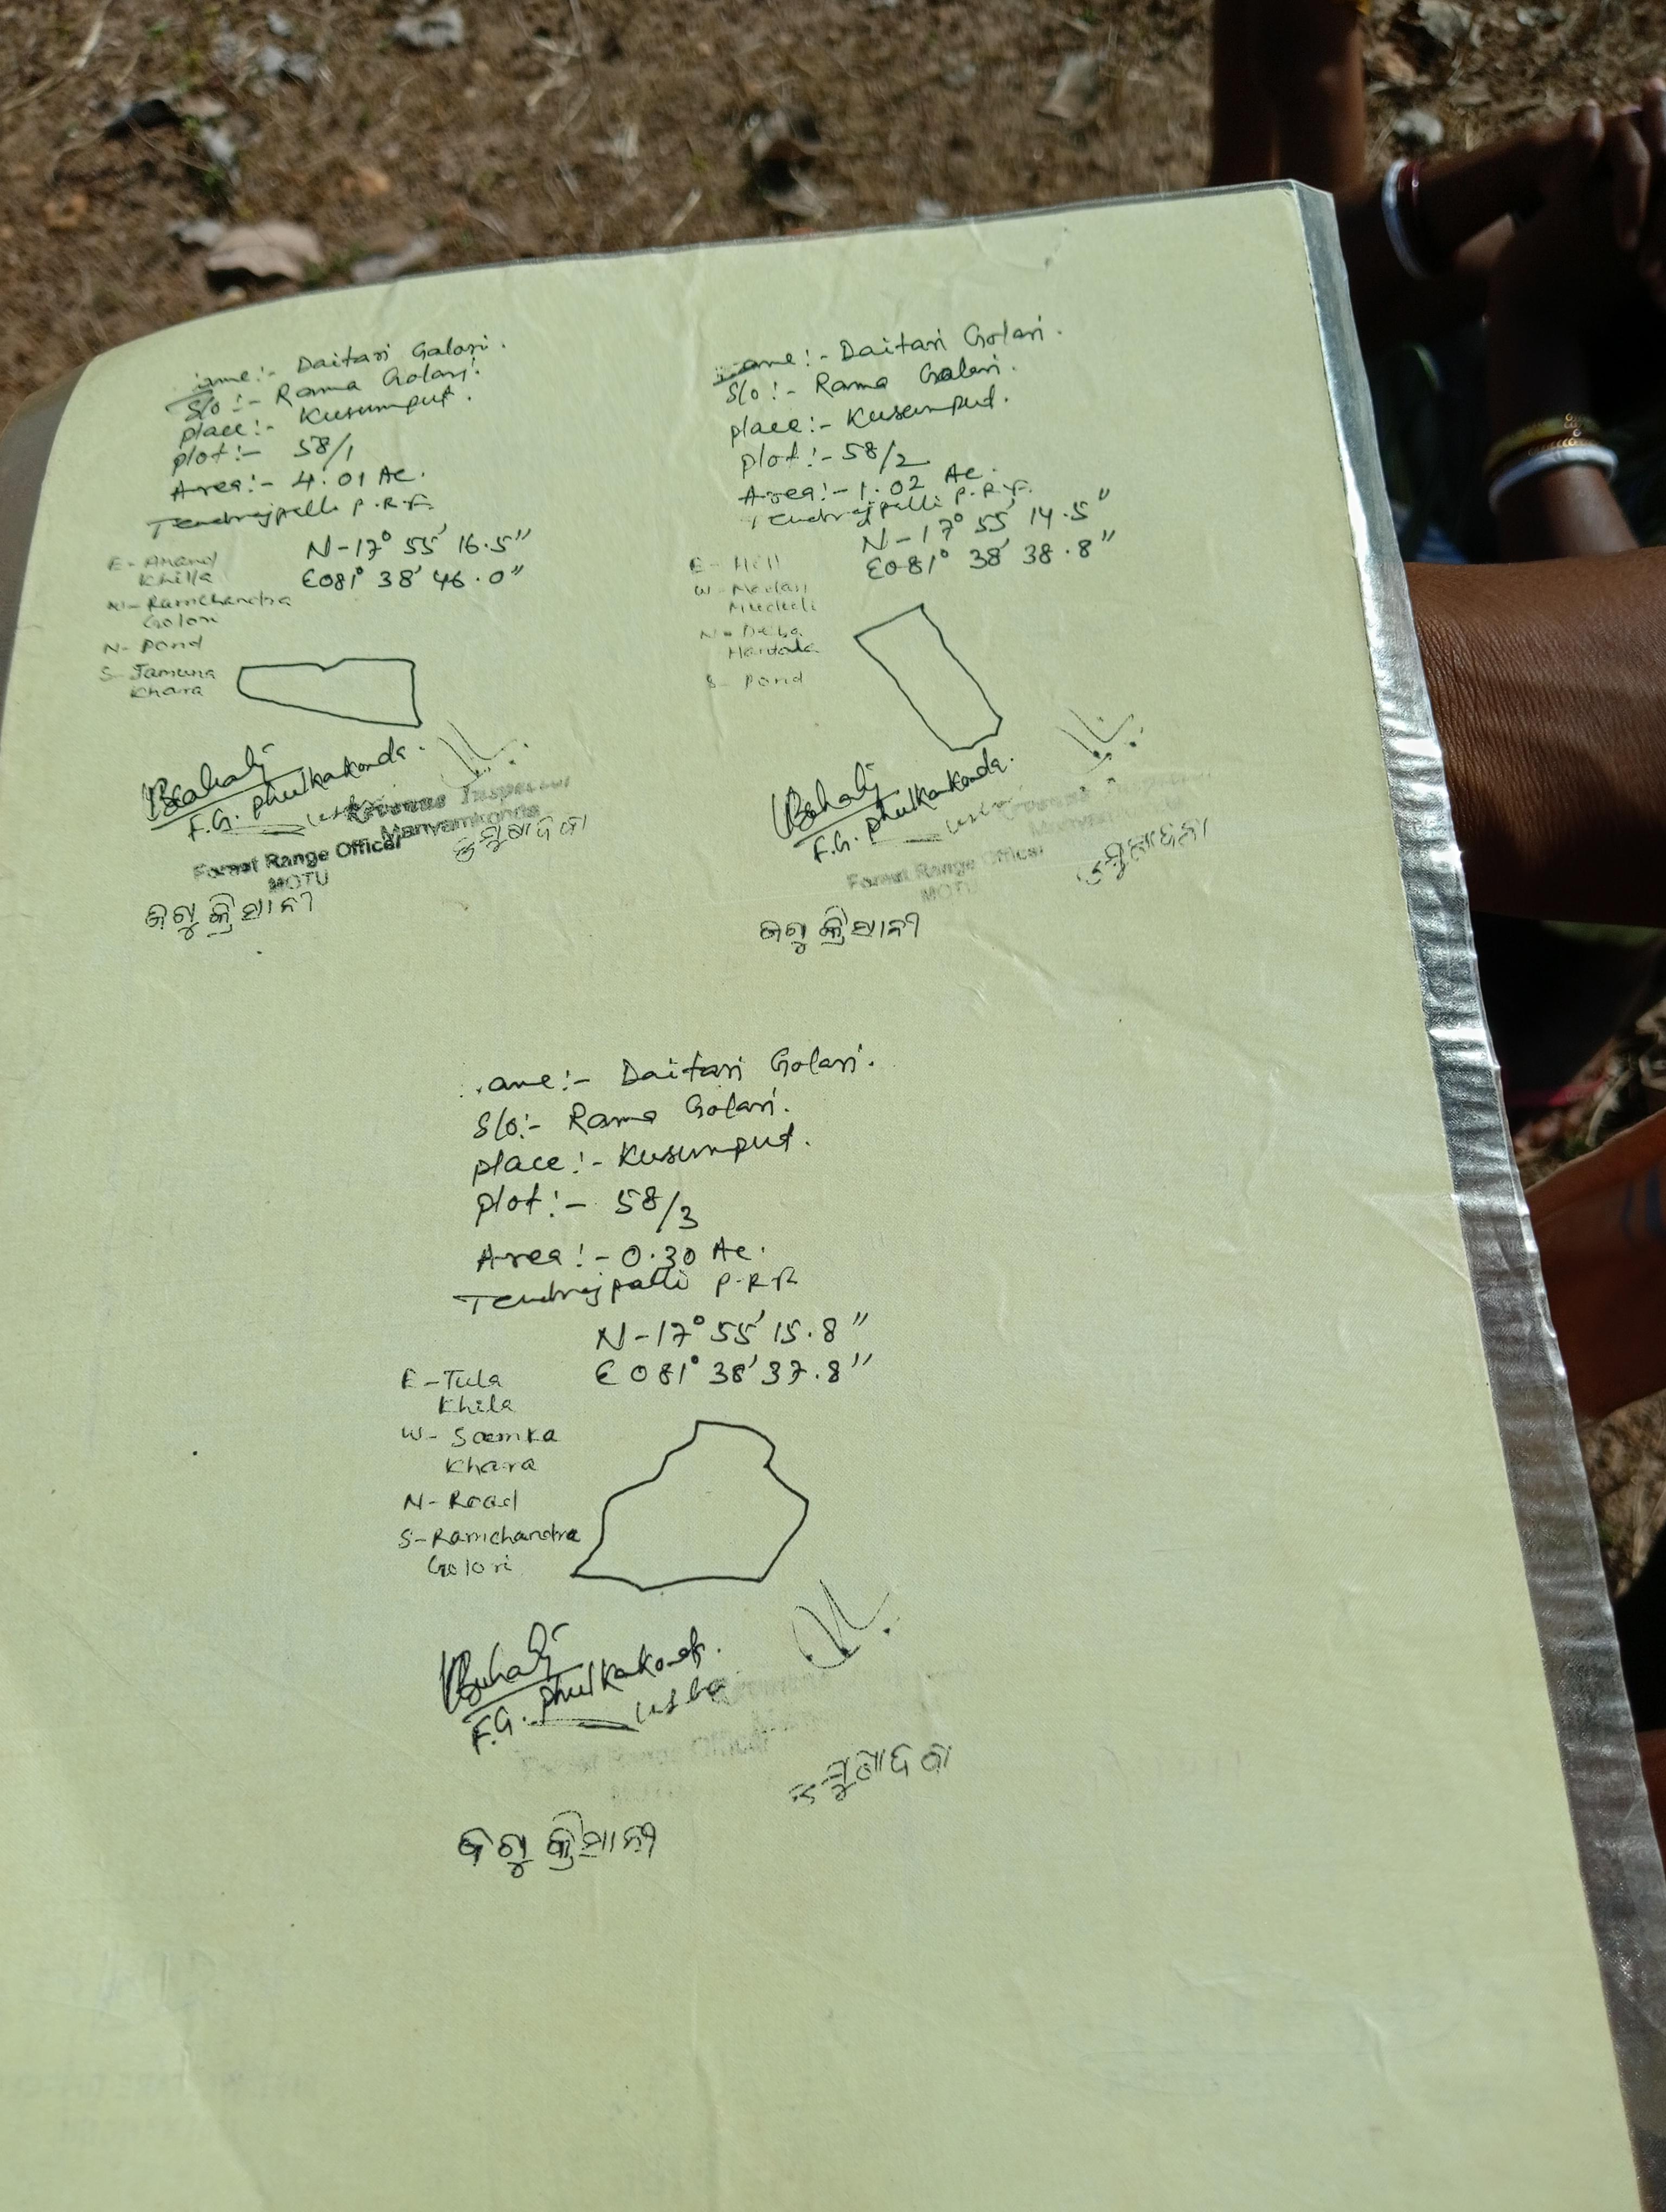 ame:- Daitari Galari.
S/o:- Rama Golari.
place:- Kusumput.
plot:- 58/1
Area:- 4.01 Ac.
Tendrajpalli P.R.F.
N-17° 55' 16.5"
E081° 38' 46.0"
E- Anand
Khilla
W- Ramchandra
Golori
N- Pond
S- Jamuna
Khara
F.G. Phulkakonda.
Revenue Inspector
Manyamkonda
Forest Range Officer
MOTU
ଜଗୁ କ୍ରିସାନୀ
ame:- Daitari Golari.
S/o:- Rama Golari.
place:- Kusumput.
plot:- 58/2
Area:- 1.02 Ac.
Tendrajpalli P.R.F.
N-17° 55' 14.5"
E081° 38' 38.8"
E- Hill
W- Madan
Muduli
N- Deba
Hantala
S- Pond
F.G. Phulkakonda.
Forest Range Officer
MOTU
ଜଗୁ କ୍ରିସାନୀ
ame:- Daitari Golari.
S/o:- Rama Golari.
place:- Kusumput.
plot:- 58/3
Area:- 0.30 Ac.
Tendrajpalli P.R.F.
N-17° 55' 15.8"
E081° 38' 37.8"
E- Tula
Khila
W- Samka
Khara
N- Road
S- Ramchandra
Golori
F.G. Phulkakonda.
Forest Range Officer
ଜଗୁ କ୍ରିସାନୀ